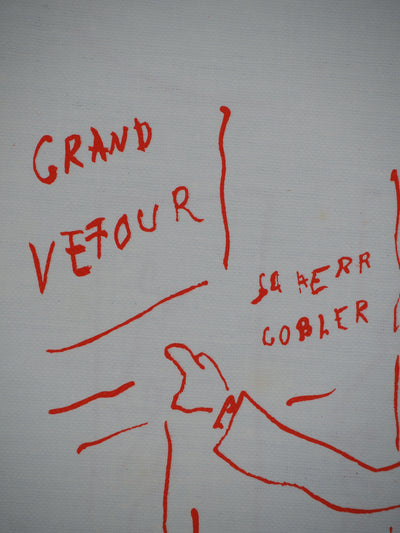 GRAND
VEFOUR
SCHERR
GOBLER